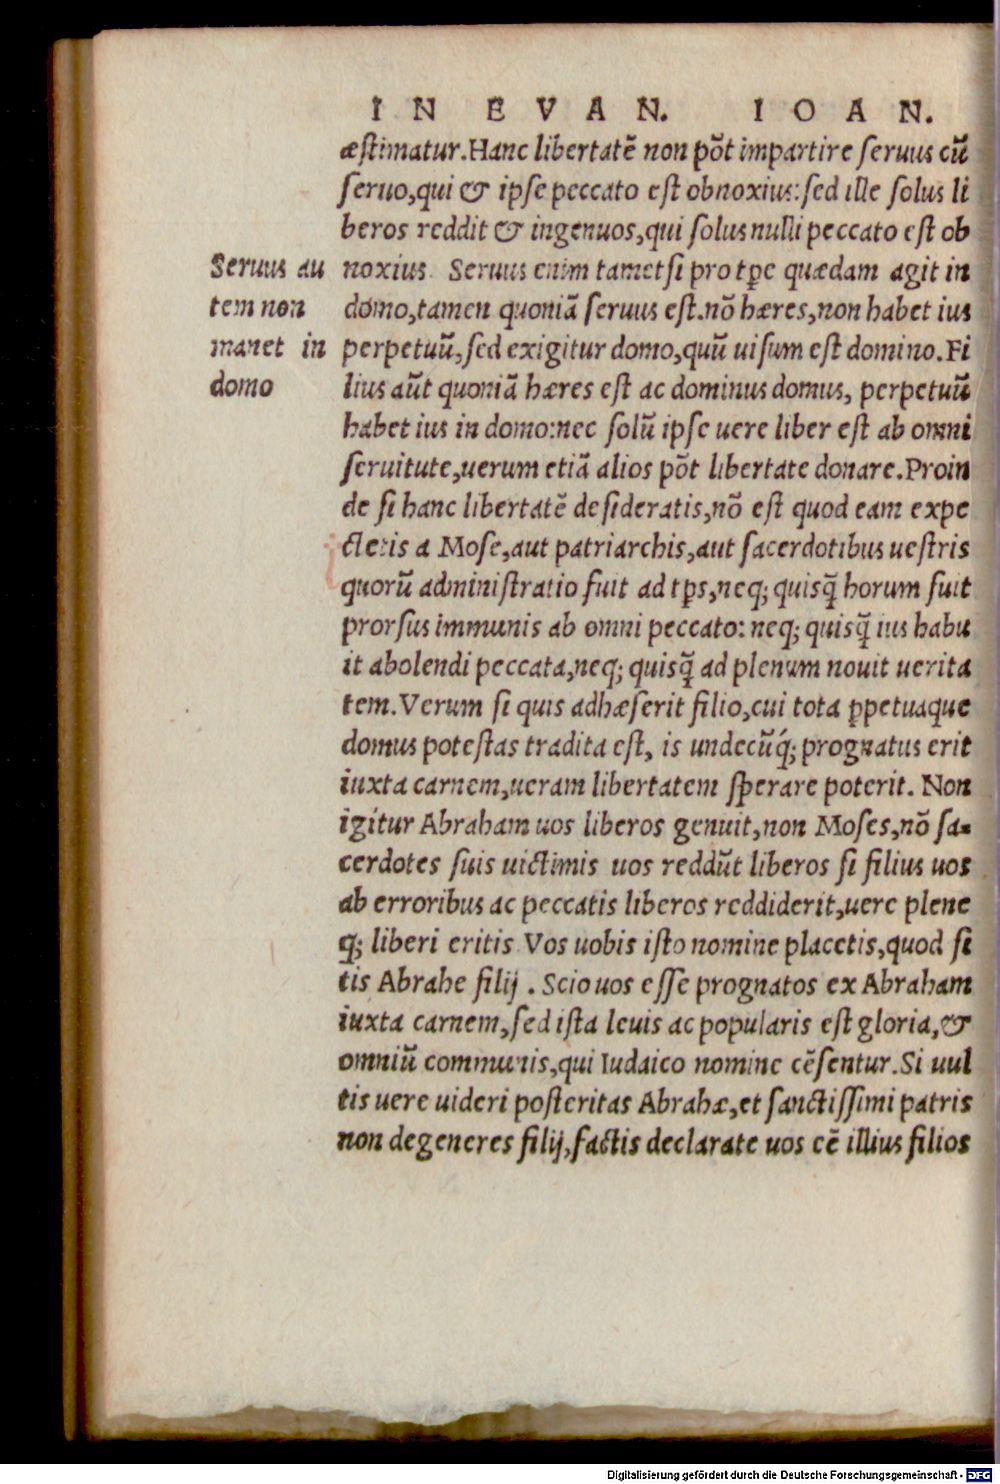 IN EVAN. IOAN.
æstimatur. Hanc libertatē non põt impartire seruus cū
seruo, qui & ipse peccato est obnoxius: sed ille solus li
beros reddit & ingenuos, qui solus nulli peccato est ob
noxius. Seruus enim tametsi pro tꝑe quædam agit in
domo, tamen quoniā seruus est. nō hæres, non habet ius
perpetuū, sed exigitur domo, quū uisum est domino. Fi
lius aūt quoniā hæres est ac dominus domus, perpetuū
habet ius in domo: nec solū ipse uere liber est ab omni
seruitute, uerum etiā alios põt libertate donare. Proin
de si hanc libertatē desideratis, nō est quod eam expe
ctetis a Mose, aut patriarchis, aut sacerdotibus uestris
quorū administratio fuit ad tꝑs, neq; quisq̃ horum fuit
prorsus immunis ab omni peccato: neq; quisq̃ ius habu
it abolendi peccata, neq; quisq̃ ad plenum nouit uerita
tem. Verum si quis adhæserit filio, cui tota ꝑpetuaque
domus potestas tradita est, is undecūq́; prognatus erit
iuxta carnem, ueram libertatem sperare poterit. Non
igitur Abraham uos liberos genuit, non Moses, nō sa-
cerdotes suis uictimis uos reddūt liberos si filius uos
ab erroribus ac peccatis liberos reddiderit, uere plene
q; liberi eritis Vos uobis isto nomine placetis, quod si
tis Abrahe filij. Scio uos esse prognatos ex Abraham
iuxta carnem, sed ista leuis ac popularis est gloria, &
omniū communis, qui Iudaico nomine cēsentur. Si uul
tis uere uideri posteritas Abrahæ, et sanctissimi patris
non degeneres filij, factis declarate uos eē illius filios
Seruus au
tem non
manet in
domo
Digitalisierung gefördert durch die Deutsche Forschungsgemeinschaft - DFG